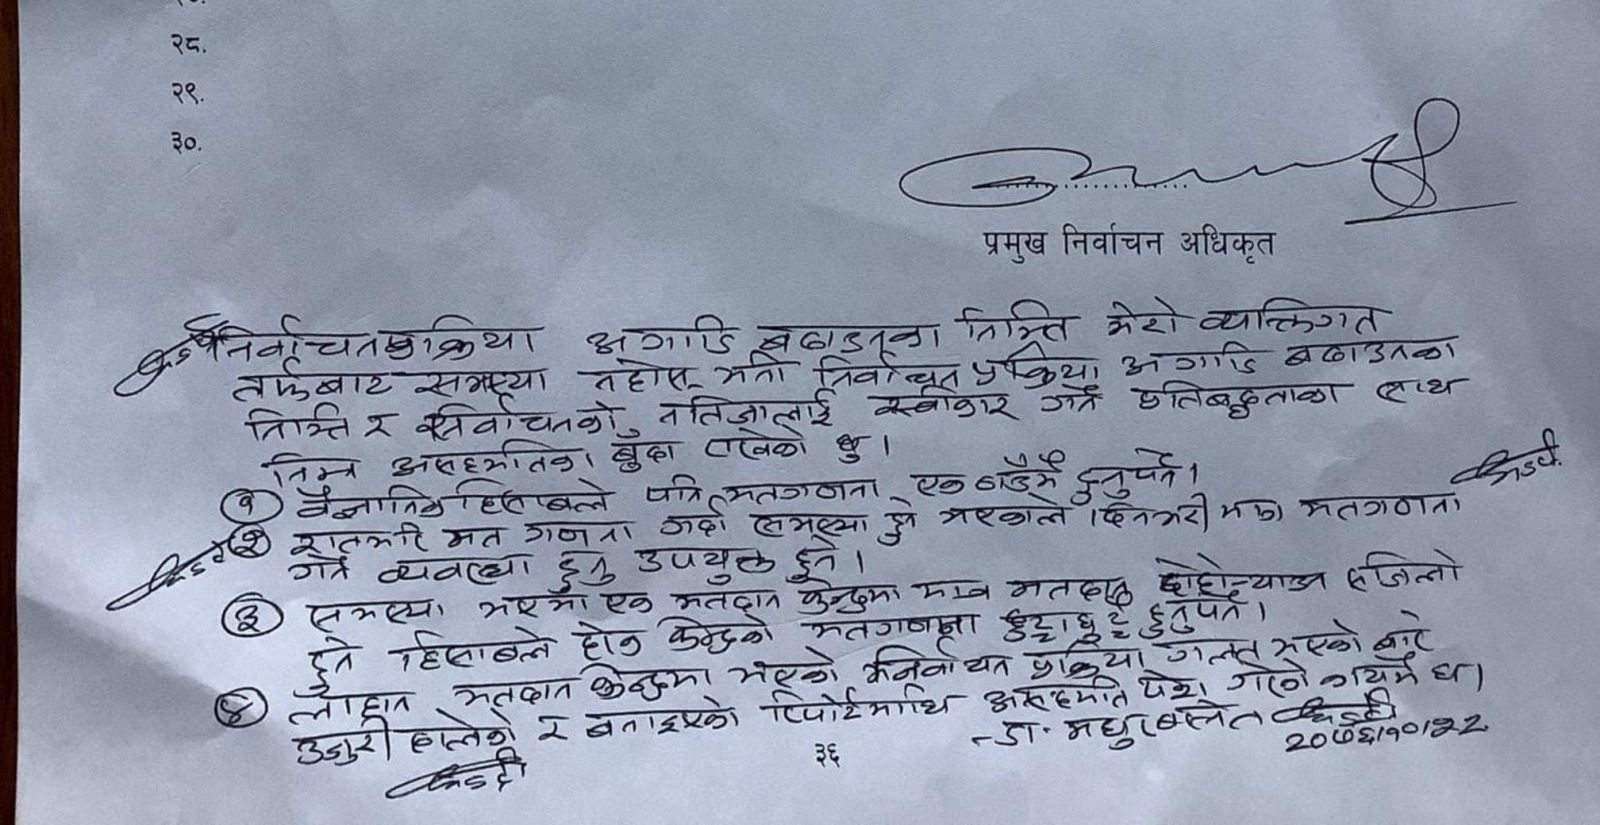 २८.
२९.
३०.
प्रमुख निर्वाचन अधिकृत
निर्वाचन प्रक्रिया अगाडि बढाउनका निम्ति मेरो व्यक्तिगत
तर्फबाट समस्या नहोस् भनी निर्वाचन प्रक्रिया अगाडि बढाउनका
निम्ति र निर्वाचनको नतिजालाई स्वीकार गर्ने प्रतिबद्धताका साथ
निम्न असहमतिका बुँदा राखेको छु।
१ वैज्ञानिक हिसाबले पनि मतगणना एक ठाउँमै हुनुपर्ने।
२ रातभरि मत गणना गर्दा समस्या हुने भएकाले दिनभरी मात्र मतगणना
गर्ने व्यवस्था हुनु उपयुक्त हुने।
३ समस्या भएमा एक मतदान केन्द्रमा मात्र मतदान दोहोर्‍याउन सजिलो
हुने हिसाबले हरेक केन्द्रको मतगणना छुट्टाछुट्टै हुनुपर्ने।
४ लाहान मतदान केन्द्रमा भएको निर्वाचन प्रक्रिया गलत भएको बारे
उजुरी हालेको र बनाइएको रिपोर्टमाथि असहमति पेश गरेको गरेको छु।
- डा. मधु
२०७६।१०।२२
३६